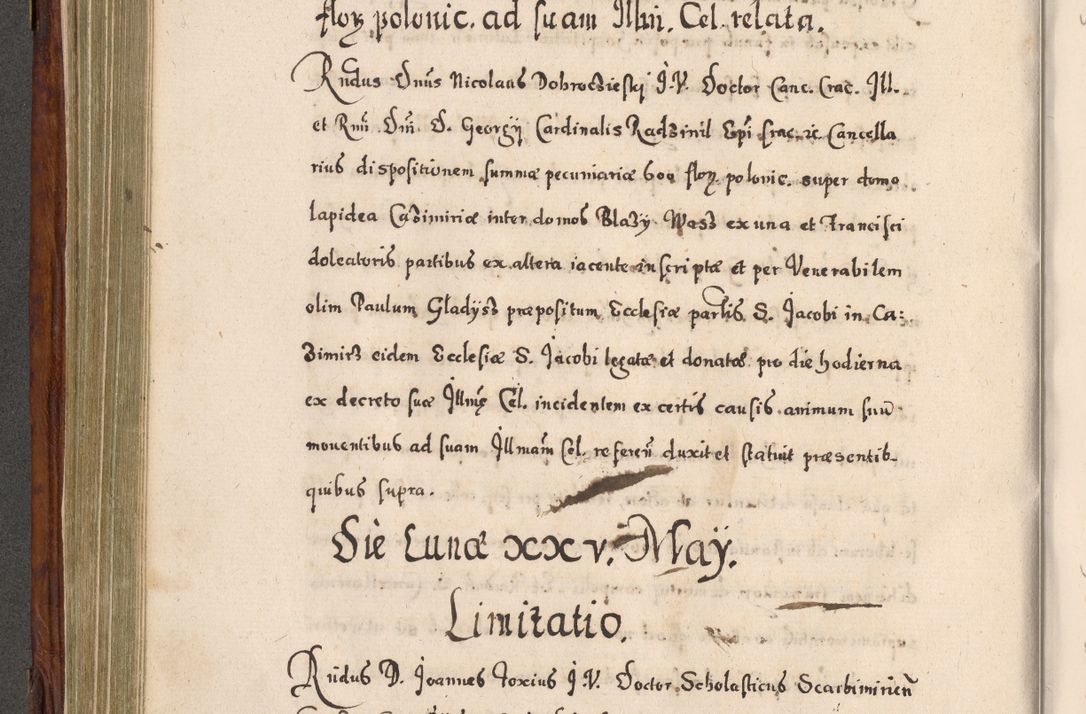 flor. polonic. ad suam Illmi. Cel. relata.
Rndus Dnus Nicolaus Dobrocziesky J. V. Doctor Canc. Crac. Ill.
et Rmi Dni D. Georgij Cardinalis Radzivil Epi Crac. ic. Cancella
rius dispositionem summæ pecuniariæ 600 flor. polonic. super domo
lapidea Casimiriæ inter domos Blazy Wass ex una et Francisci
doleatoris partibus ex altera iacente inscriptæ et per Venerabilem
olim Paulum Gladysz præpositum Ecclesiæ partis S. Jacobi in Ca:
zimirz eidem Ecclesiæ S. Jacobi legatæ et donatos pro die hodierna
ex decreto suæ Illmę Cel. incidentem ex certis causis animum suũ
mouentibus ad suam Illmam Cel. referen̄ duxit et statuit præsentib.
quibus supra.
Die Lunæ xxv. Maÿ.
Limitatio.
Rndus D. Joannes Foxius J. V. Doctor Scholasticus Scarbimirien̄